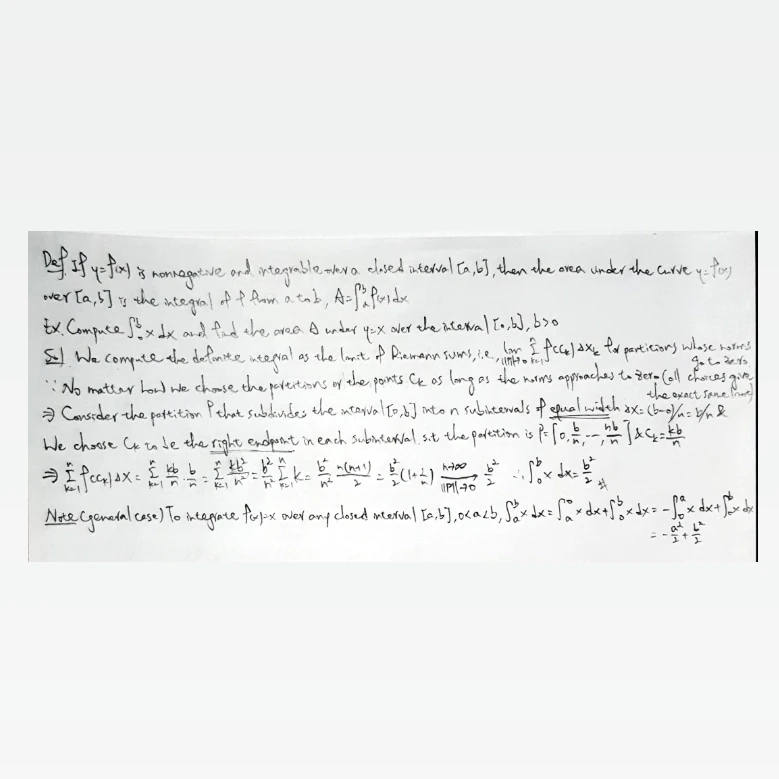 Def. If y=f(x) is nonnegative and integrable over a closed interval [a,b], then the area under the curve y=f(x)
over [a,b] is the integral of f from a to b, A=∫_a^b f(x)dx
Ex. Compute ∫_0^b x dx and find the area A under y=x over the interval [0,b], b>0
Sol. We compute the definite integral as the limit of Riemann sums, i.e., lim_{||P||→0} Σ_{k=1}^n f(C_k)ΔX_k for partitions whose norms
go to zero
∵ No matter how we choose the partitions or the points C_k as long as the norms approaches to zero (all choices give
the exact same limit)
⇒ Consider the partition P that subdivides the interval [0,b] into n subintervals of equal width ΔX=(b-0)/n=b/n &
We choose C_k to be the right endpoint in each subinterval s.t the partition is P=[0, b/n, ..., nb/n] & C_k=kb/n
⇒ Σ_{k=1}^n f(C_k)ΔX = Σ_{k=1}^n kb/n · b/n = Σ_{k=1}^n kb²/n² = b²/n² Σ_{k=1}^n k = b²/n² n(n+1)/2 = b²/2 (1+1/n) →^{n→∞}_{||P||→0} b²/2 ∴ ∫_0^b x dx = b²/2 #
Note (general case) To integrate f(x)=x over any closed interval [a,b], 0<a<b, ∫_a^b x dx = ∫_a^0 x dx + ∫_0^b x dx = -∫_0^a x dx + ∫_0^b x dx
= -a²/2 + b²/2